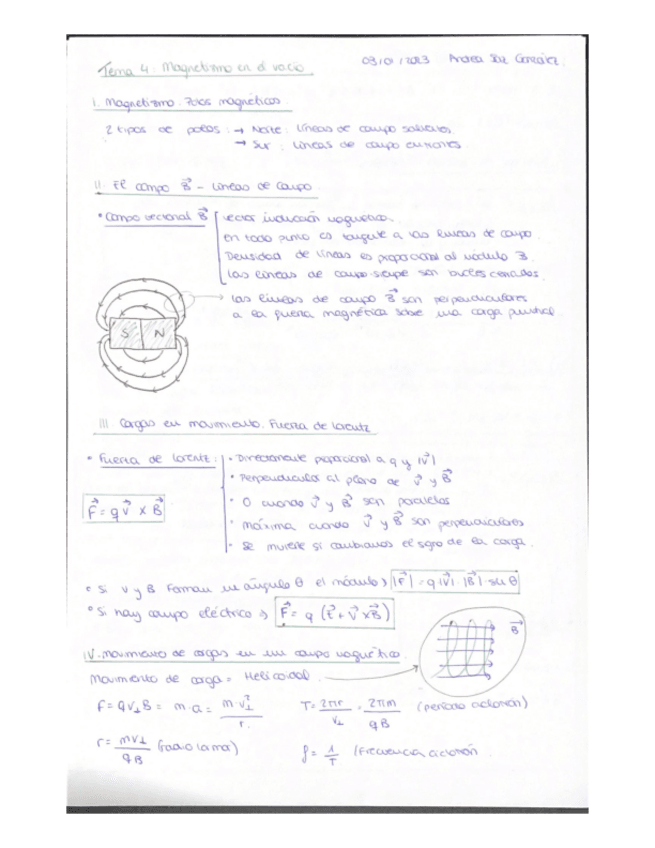 Tema 4: Magnetismo en el vacío.
I. Magnetismo. Polos magnéticos.
2 tipos de polos: → Norte: líneas de campo salientes.
→ Sur: líneas de campo entrantes.
II. El campo B⃗ - Líneas de campo.
• Campo vectorial B⃗ vector inducción magnética.
En todo punto es tangente a las líneas de campo.
Densidad de líneas es proporcional al módulo B.
Las líneas de campo siempre son bucles cerrados.
Las líneas de campo B⃗ son perpendiculares
a la fuerza magnética sobre una carga puntual.
S N
III. Cargas en movimiento. Fuerza de Lorentz
• Fuerza de Lorentz: • Directamente proporcional a q y |V⃗|
• Perpendicular al plano de V⃗ y B⃗
• 0 cuando V⃗ y B⃗ son paralelos
F⃗ = qV⃗ × B⃗
• Máxima cuando V⃗ y B⃗ son perpendiculares
• Se invierte si cambiamos el signo de la carga.
• Si V y B forman un ángulo θ el módulo → |F⃗| = q|V⃗|·|B⃗|·sen θ
• Si hay campo eléctrico → F⃗ = q (E⃗ + V⃗×B⃗)
B⃗
IV. Movimiento de cargas en un campo magnético.
Movimiento de carga = Helicoidal.
F = qV⊥B = m·a = m·V⊥²/r. T = 2πr/V⊥ = 2πm/qB (período ciclotrón)
r = mV⊥/qB (radio Larmor) f = 1/T (Frecuencia ciclotrón